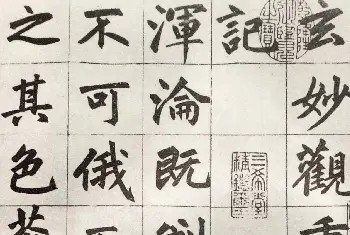 玄妙觀重
記
三希堂精鑑璽
渾淪既
不可俄
之其色